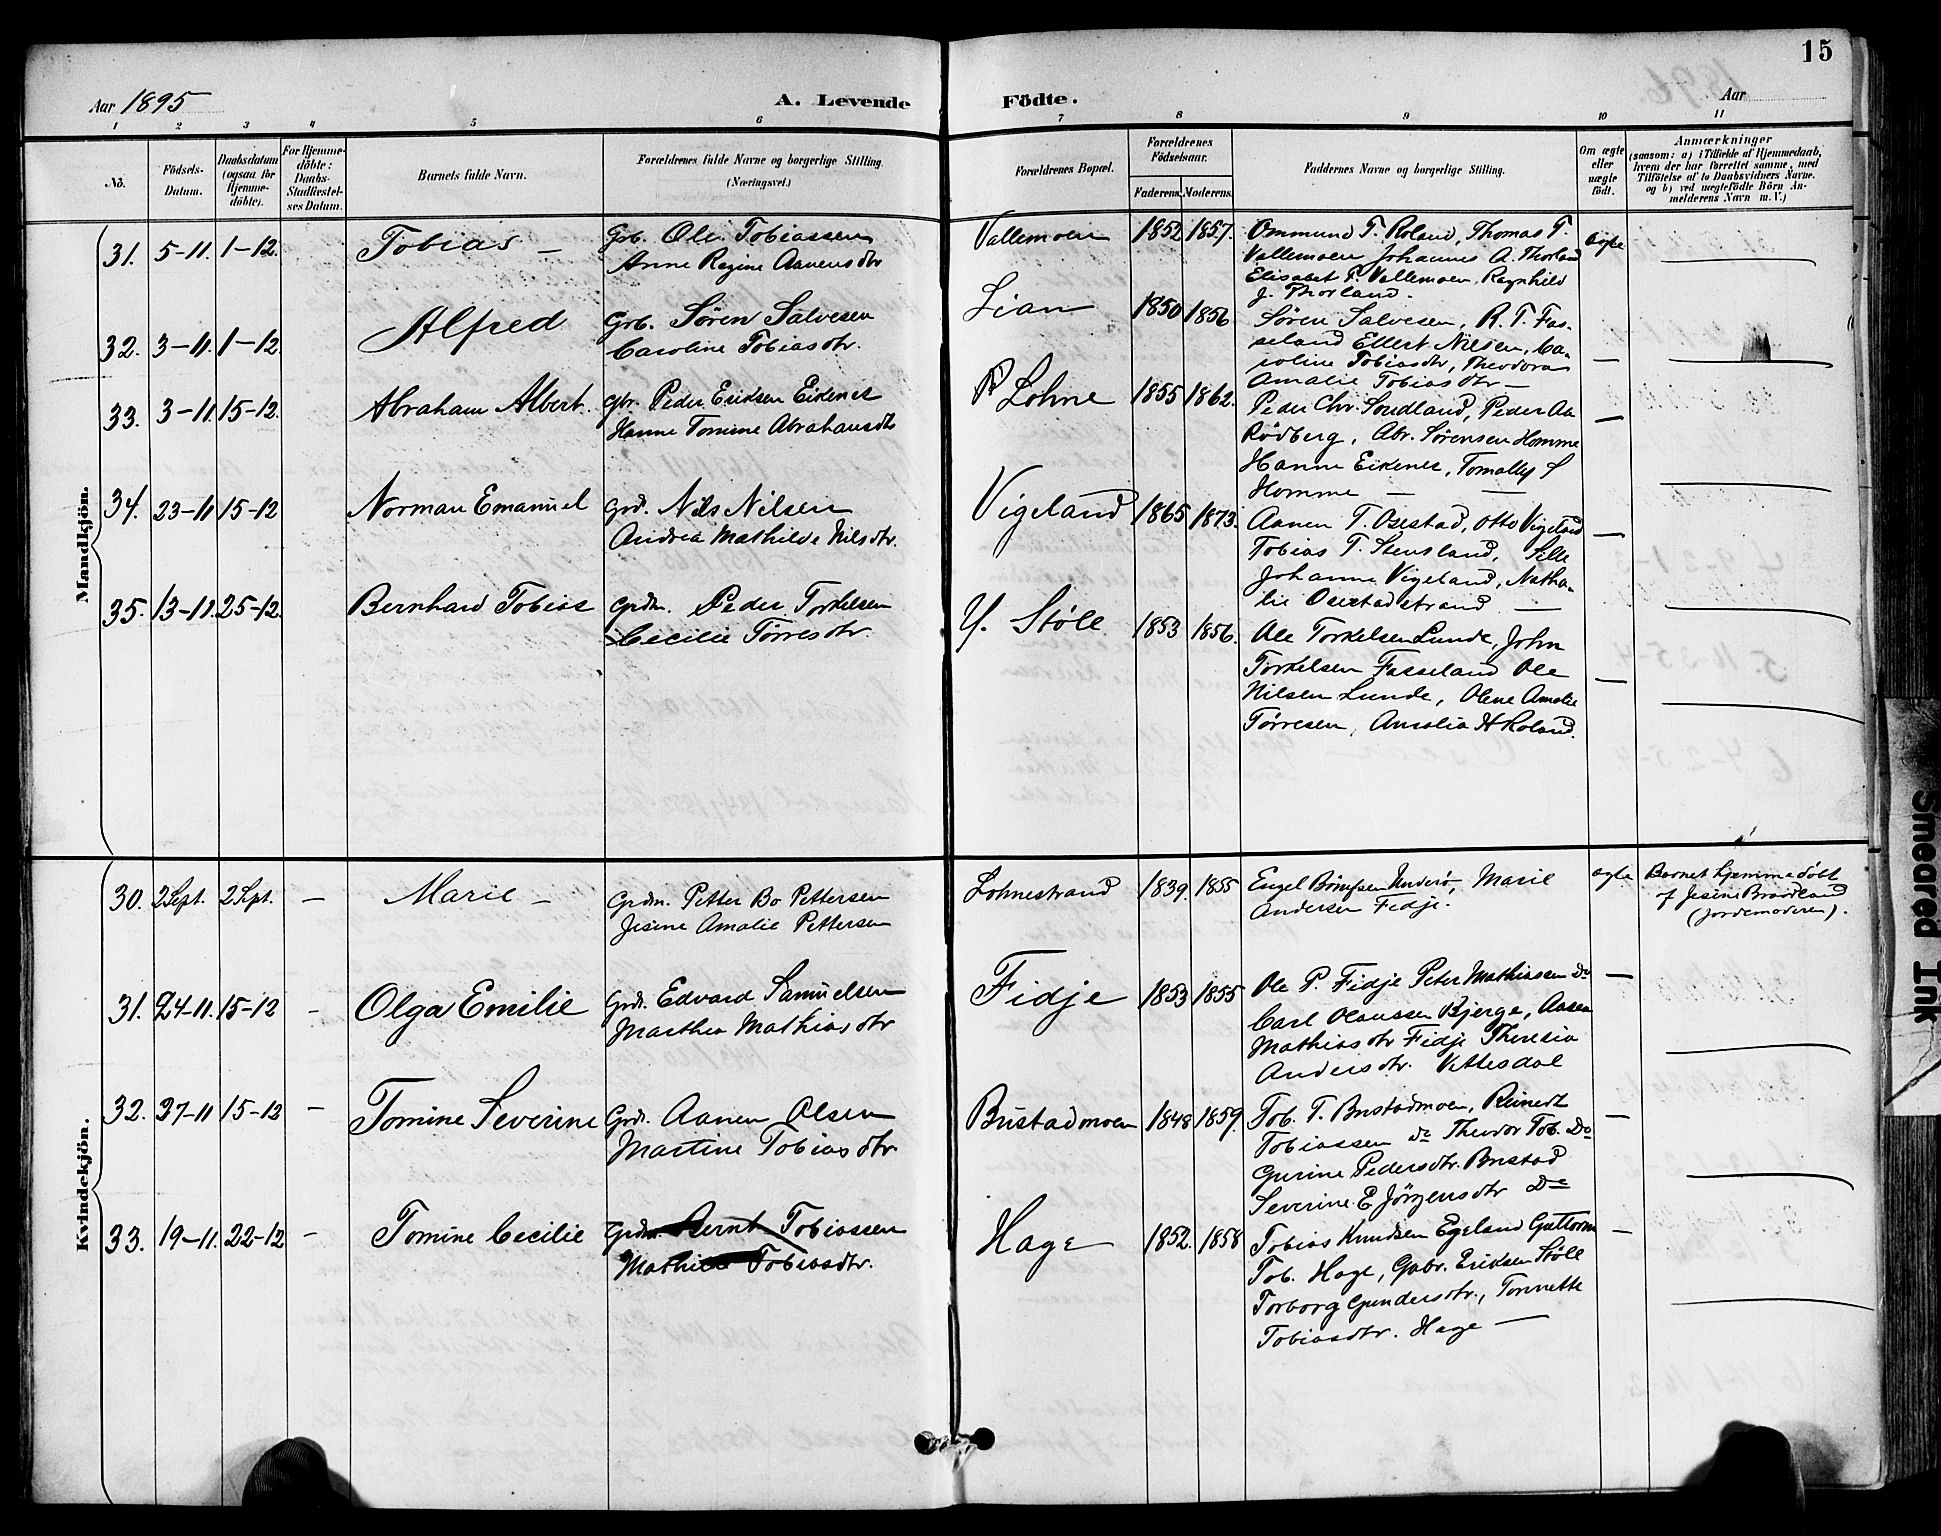 15
Aar 1895
A. Levende Födte.
Aar
1 2 3 4 5 6 7 8 9 10 11
No.
Födsels-Datum.
Daabsdatum (ogsaa for Hjemme-döbte).
For Hjemme-döbte: Daabs-Stadfæstel-ses Datum.
Barnets fulde Navn.
Forældrenes fulde Navne og borgerlige Stilling.
(Næringsvei.)
Forældrenes Bopæl.
Forældrenes Födselsaar.
Faderens. Moderens.
Faddernes Navne og borgerlige Stilling.
Om ægte eller uægte födt.
Anmærkninger
(saasom: a) i Tilfælde af Hjemmedaab, hvem der har forrettet samme, med Tilföielse af to Daabsvidners Navne. og b) ved uægtefödte Börn An-melderens Navn m. V.)
Mandkjön.
31. 5-11. 1-12. Tobias — Grb. Ole Tobiassen Vallemoen 1852 1857. Ommund T. Roland, Thomas T. ægte
Anne Regine Aanensdtr Vallemoen Johannes A. Thorland
Elisabet T. Vallemoen, Ragnhild
J. Thorland.
32. 3-11. 1-12. Alfred Grb. Søren Salvesen Lian 1850 1856 Søren Salvesen, R. T. Fas- —
Caroline Tobiasdtr. seland Ellert Nilsen, Ca-
roline Tobiasdtr, Theodora
Amalie Tobiasdtr —
33. 3-11. 15-12. Abraham Albert. Gbr. Peder Eriksen Eikenes Lohne 1855 1862. Peder Chr. Sordland, Peder Aa —
Hanne Tomine Abrahamsdtr Rödberg, Abr. Sørensen Homme
Hanne Eikenes, Tomally S
Homme — —
34. 23-11 15-12 Norman Emanuel Grd. Nils Nilsen Vigeland 1865 1873. Aanen T. Osestad, Otto Vigeland —
Andrea Mathilde Nilsdtr. Tobias T. Stensland, Sille
Johanne Vigeland, Natha-
lie Osestadstrand —
35. 13-11. 25-12. Bernhard Tobias Grdm. Peder Torkelsen Y. Støle 1853 1856. Ole Torkelsen Lunde, John —
Cecilie Tørresdtr. Torkelsen Fasseland Ole
Nilsen Lunde, Olene Amalie
Tørresen, Amalia H Roland.
Kvindekjön.
30. 2 Sept. 2 Sept. — Marie — Grdm. Petter Bo Pettersen Lohnestrand 1839. 1855 Engel Underø, Marie ægte Barnet hjemmedøbt
Jesine Amalie Pettersen Andersen Fidje. af Jesine Braadland
(Jordemoderen).
31. 24-11. 15-12 - Olga Emilie Grd. Edvard Samuelsen Fidje 1853 1855 Ole P. Fidje Peter Mathiassen Do —
Marthea Mathiasdtr Carl Olaussen Bjerge, Aasea
Mathiasdtr Fidje Theresia
Andersdtr. Vettesdal
32. 27-11 15-12 — Tomine Severine Grd. Aanen Olsen Bustadmoen 1848 1859. Tob. T. Bustadmoen, Reinert —
Martine Tobiasdtr Tobiassen do Theodor Tob. Do
Gurine Pedersdtr. Bustad
Severine E Jörgensdtr Do
33. 19-11. 22-12 - Tomine Cecilie Grdm. Bernt Tobiassen Hage 1852. 1858 Tobias Knudsen Egeland Guttorm —
Mathilde Tobiasdtr. Tob. Hage, Gabr. Eriksen Støle
Torborg Gundersdtr., Tonnette
Tobiasdtr. Hage —
Smeared Ink